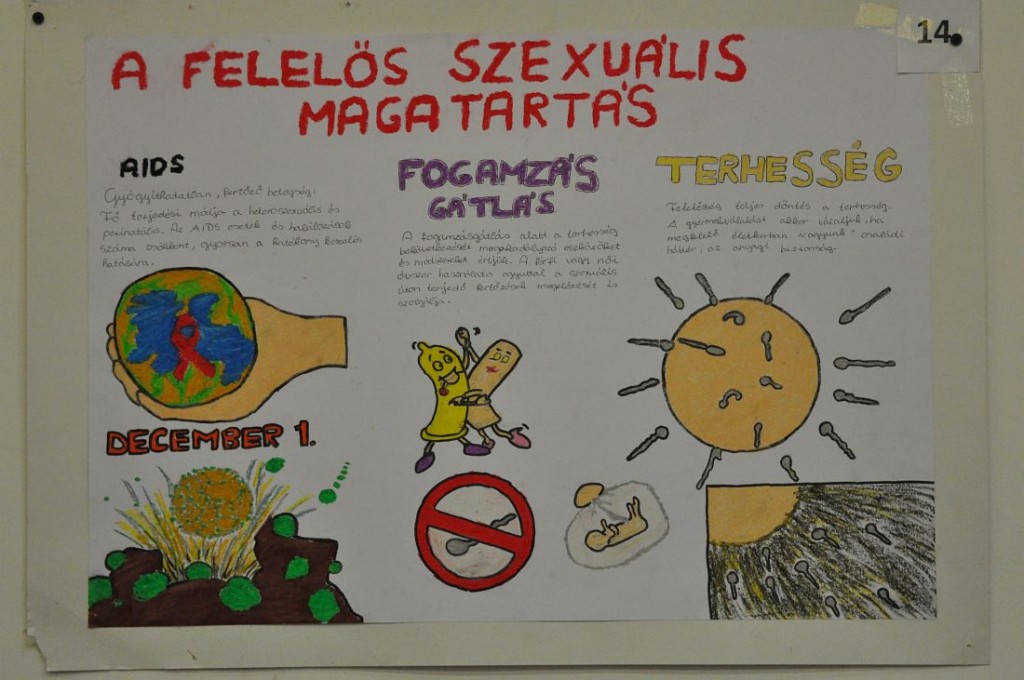 14.
A FELELŐS SZEXUÁLIS
MAGATARTÁS
AIDS
Gyógyíthatatlan, fertőző betegség.
Fő terjedési módja a heteroszexuális és
perinatális. Az AIDS esetek és halálozások
száma csökkent, gyorsan a hatékony kezelés
hatására.
DECEMBER 1.
FOGAMZÁS
GÁTLÁS
A fogamzásgátlás alatt a terhesség
bekövetkezését megakadályozó eszközöket
és módszereket értjük. A férfi vagy női
óvszer használata egyúttal a szexuális
úton terjedő fertőzések megelőzését is
szolgálja.
TERHESSÉG
Felelősség teljes döntés a terhesség.
A gyermekvállalást akkor vállaljuk, ha
megfelelő életkorban vagyunk családi
háttér, az anyagi biztonság.